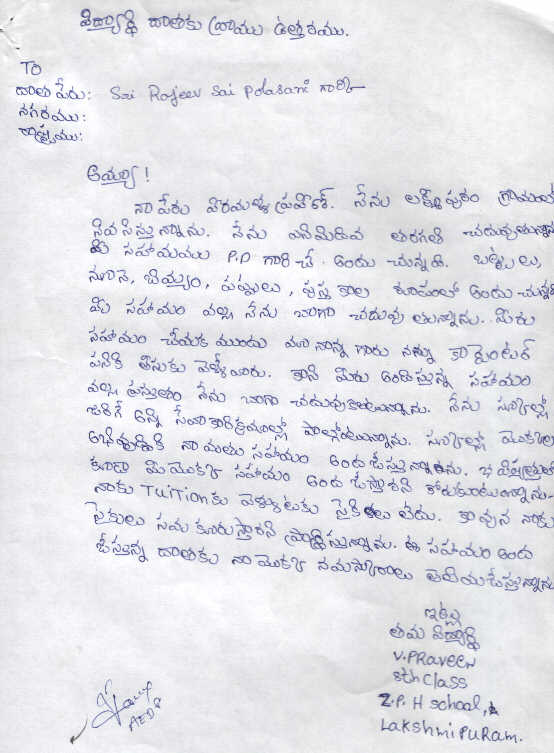 విద్యార్థి దాతకు వ్రాయు ఉత్తరము.
TO
దాత పేరు: Sai Rajeev Sai Polasani గారికి
నగరము:
రాష్ట్రము:
అయ్యా!
నా పేరు వీరమళ్ళ ప్రవీణ్. నేను లక్ష్మీపురం గ్రామంలో
నివసిస్తున్నాను. నేను ఎనిమిదివ తరగతి చదువుతున్నాను
మీ సహాయము P.D గారిచే అందు చున్నది. బట్టలు,
నూనె, బియ్యం, పప్పులు, పుస్తకాల రూపంలో అందు చున్నది
మీ సహాయం వల్ల నేను బాగా చదువు తున్నాను. మీరు
సహాయం చేయక ముందు మా నాన్న గారు నన్ను కార్పెంటర్
పనికి తీసుకు వెళ్ళేవారు. కాని మీరు అందిస్తున్న సహాయం
వల్ల ప్రస్తుతం నేను బాగా చదువుకుంటున్నాను. నేను స్కూల్లో
జరిగే అన్ని సేవాకార్యక్రమాల్లో పాల్గొంటున్నాను. స్కూల్లో మొక్కల
అభివృద్ధికి నా వంతు సహాయం అంద జేస్తున్నాను. భవిష్యత్తులో
కూడా మీ యొక్క సహాయం అంద జేస్తారని కోరుకుంటున్నాను.
నాకు Tuition కు వెళ్ళుటకు సైకిలు లేదు. కావున నాకు
సైకిలు సమ కూరుస్తారని ప్రార్థిస్తున్నాను. ఈ సహాయం అంద
జేస్తున్న దాతకు నా యొక్క నమస్కారాలు తెలియజేస్తున్నాను
ఇట్లు
తమ విద్యార్థి
V. PRaveen
8th Class
Z.P.H School,
Lakshmi puRam.
AEDP